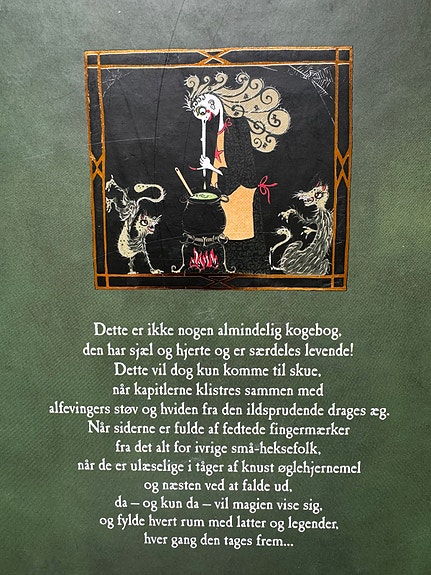 Dette er ikke nogen almindelig kogebog,
den har sjæl og hjerte og er særdeles levende!
Dette vil dog kun komme til skue,
når kapitlerne klistres sammen med
alfevingers støv og hviden fra den ildsprudende drages æg.
Når siderne er fulde af fedtede fingermærker
fra det alt for ivrige små-heksefolk,
når de er ulæselige i tåger af knust øglehjernemel
og næsten ved at falde ud,
da – og kun da – vil magien vise sig,
og fylde hvert rum med latter og legender,
hver gang den tages frem...